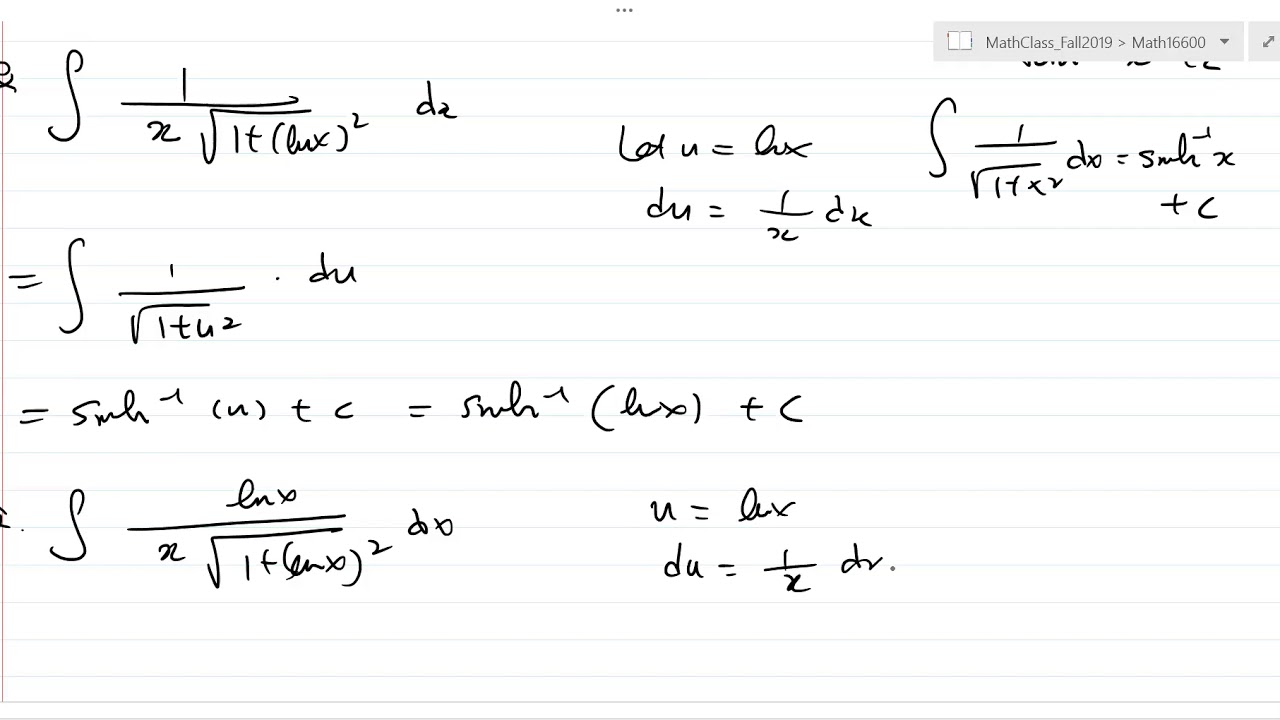 ...
MathClass_Fall2019 > Math16600
∫ 1/(x √(1+(lnx)²)) dx
Let u = lnx
du = 1/x dx
∫ 1/√(1+x²) dx = sinh⁻¹ x + c
= ∫ 1/√(1+u²) · du
= sinh⁻¹ (u) + c = sinh⁻¹ (lnx) + c
∫ lnx/(x √(1+(lnx)²)) dx
u = lnx
du = 1/x dx.